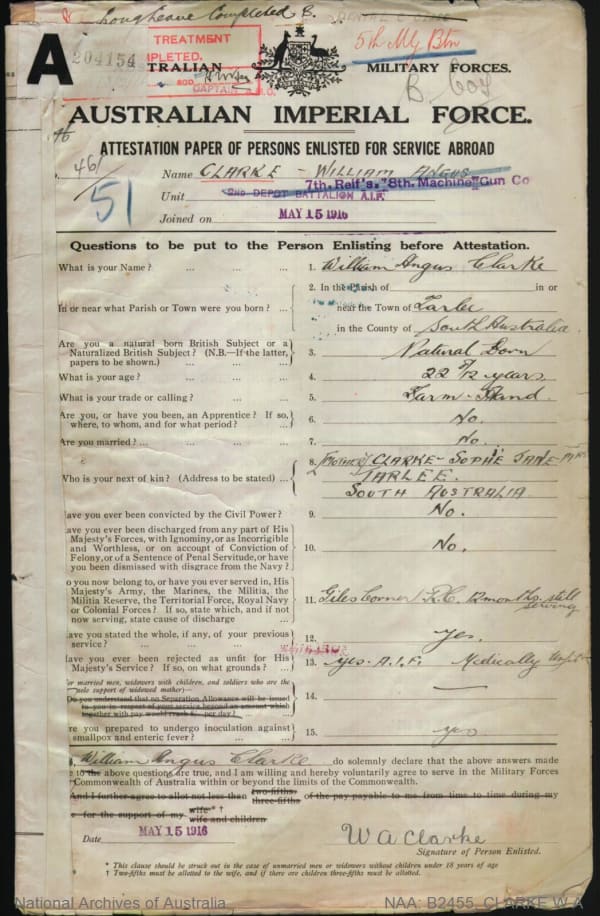 Longheave Completed C.
A
204154
TREATMENT
PLETED.
CAPTAIN
5th Mg Btn
TRALIAN MILITARY FORCES.
AUSTRALIAN IMPERIAL FORCE.
ATTESTATION PAPER OF PERSONS ENLISTED FOR SERVICE ABROAD
461
51
Name CLARKE - WILLIAM ANGUS
7th. Reif's. "8th. Machine" Gun Co
Unit 2ND DEPOT BATTALION A.I.F.
Joined on MAY 15 1916
Questions to be put to the Person Enlisting before Attestation.
What is your Name? ... ... ... 1. William Angus Clarke
2. In the Parish of in or
In or near what Parish or Town were you born? ... near the Town of Tarlee
in the County of South Australia
Are you a natural born British Subject or a
Naturalized British Subject? (N.B.—If the latter,
papers to be shown.) ... ... 3. Natural Born
What is your age? ... ... ... 4. 22 7/12 years
What is your trade or calling? ... ... 5. Farm-Hand
Are you, or have you been, an Apprentice? If so,
where, to whom, and for what period? ... 6. No.
Are you married? ... ... ... 7. No.
8. (MOTHER) CLARKE - SOPHIE JANE - MRS
Who is your next of kin? (Address to be stated) ... TARLEE
SOUTH AUSTRALIA
ave you ever been convicted by the Civil Power? 9. No.
ave you ever been discharged from any part of His
Majesty's Forces, with Ignominy, or as Incorrigible
and Worthless, or on account of Conviction of
Felony, or of a Sentence of Penal Servitude, or have
you been dismissed with disgrace from the Navy? 10. No.
o you now belong to, or have you ever served in, His
Majesty's Army, the Marines, the Militia, the
Militia Reserve, the Territorial Force, Royal Navy
or Colonial Forces? If so, state which, and if not
now serving, state cause of discharge ... 11. Giles Corner R.C. 12 months. still
serving
ave you stated the whole, if any, of your previous
service? ... ... ... 12. yes.
ave you ever been rejected as unfit for His
Majesty's Service? If so, on what grounds? ... 13. yes. A.I.F. Medically Unfit
or married men, widowers with children, and soldiers who are the
sole support of widowed mother)—
Do you understand that no Separation Allowance will be issued
to you in respect of your service beyond an amount which
together with pay would reach per day? ... 14. —
re you prepared to undergo inoculation against
smallpox and enteric fever? ... ... 15. yes
William Angus Clarke do solemnly declare that the above answers made
to the above questions are true, and I am willing and hereby voluntarily agree to serve in the Military Forces
Commonwealth of Australia within or beyond the limits of the Commonwealth.
And I further agree to allot not less than two-fifths three-fifths of the pay payable to me from time to time during my
for the support of my wife* † wife and children
Date MAY 15 1916 W A Clarke
Signature of Person Enlisted.
* This clause should be struck out in the case of unmarried men or widowers without children under 18 years of age
† Two-fifths must be allotted to the wife, and if there are children three-fifths must be allotted.
National Archives of Australia NAA: B2455, CLARKE W A